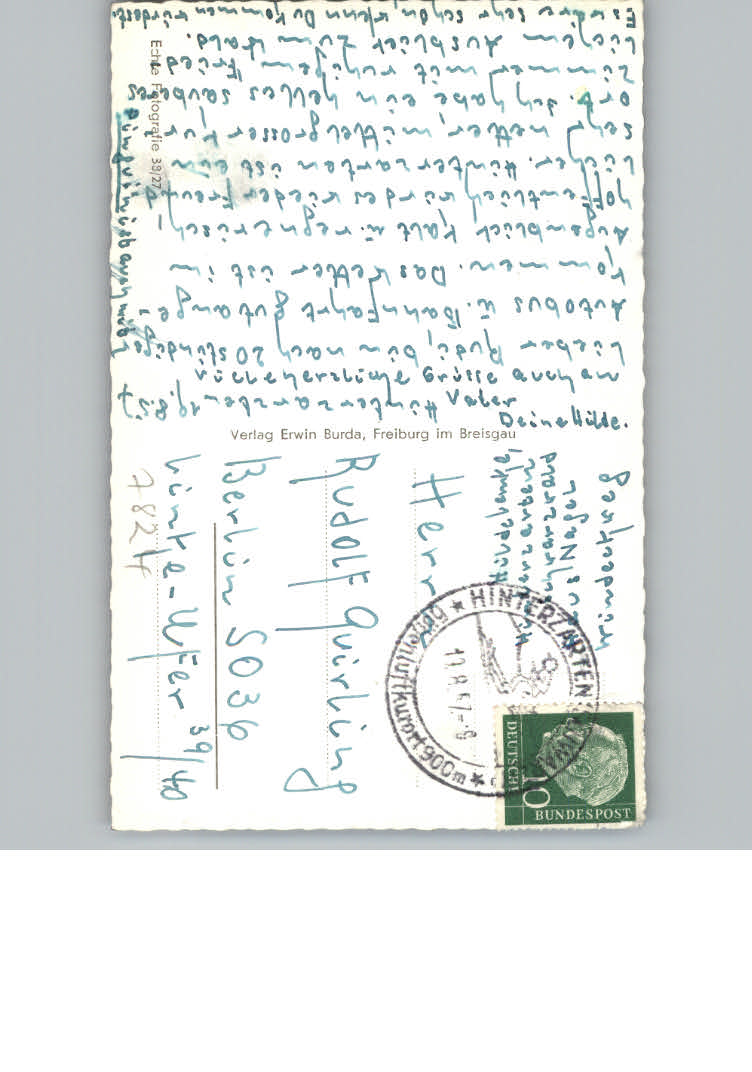 Hinterzarten 19.8.57
Lieber Rudi, bin nach 20stündiger
Autobus u. Bahnfahrt gut ange-
kommen. Das Wetter ist im
Augenblick kalt u. regnerisch
hoffentlich wird es wieder freund-
licher. Hinterzarten ist ein
sehr netter, mittelgrosser Kur
ort. Ich habe ein helles sauberes
Zimmer mit ruhigem Fried
lichem Ausblick zum Wald.
Es wäre sehr schön, wenn Du kommen würdest.
Viele herzliche Grüsse auch an
Vater
Deine Hilde.
Echte Fotografie 39/27
Verlag Erwin Burda, Freiburg im Breisgau
Herrn
Rudolf Quirling
Berlin SO36
Linke-Ufer 39/40
7824
HINTERZARTEN
Höhenluftkurort 900m
19.8.57.-8
DEUTSCHE
BUNDESPOST
10